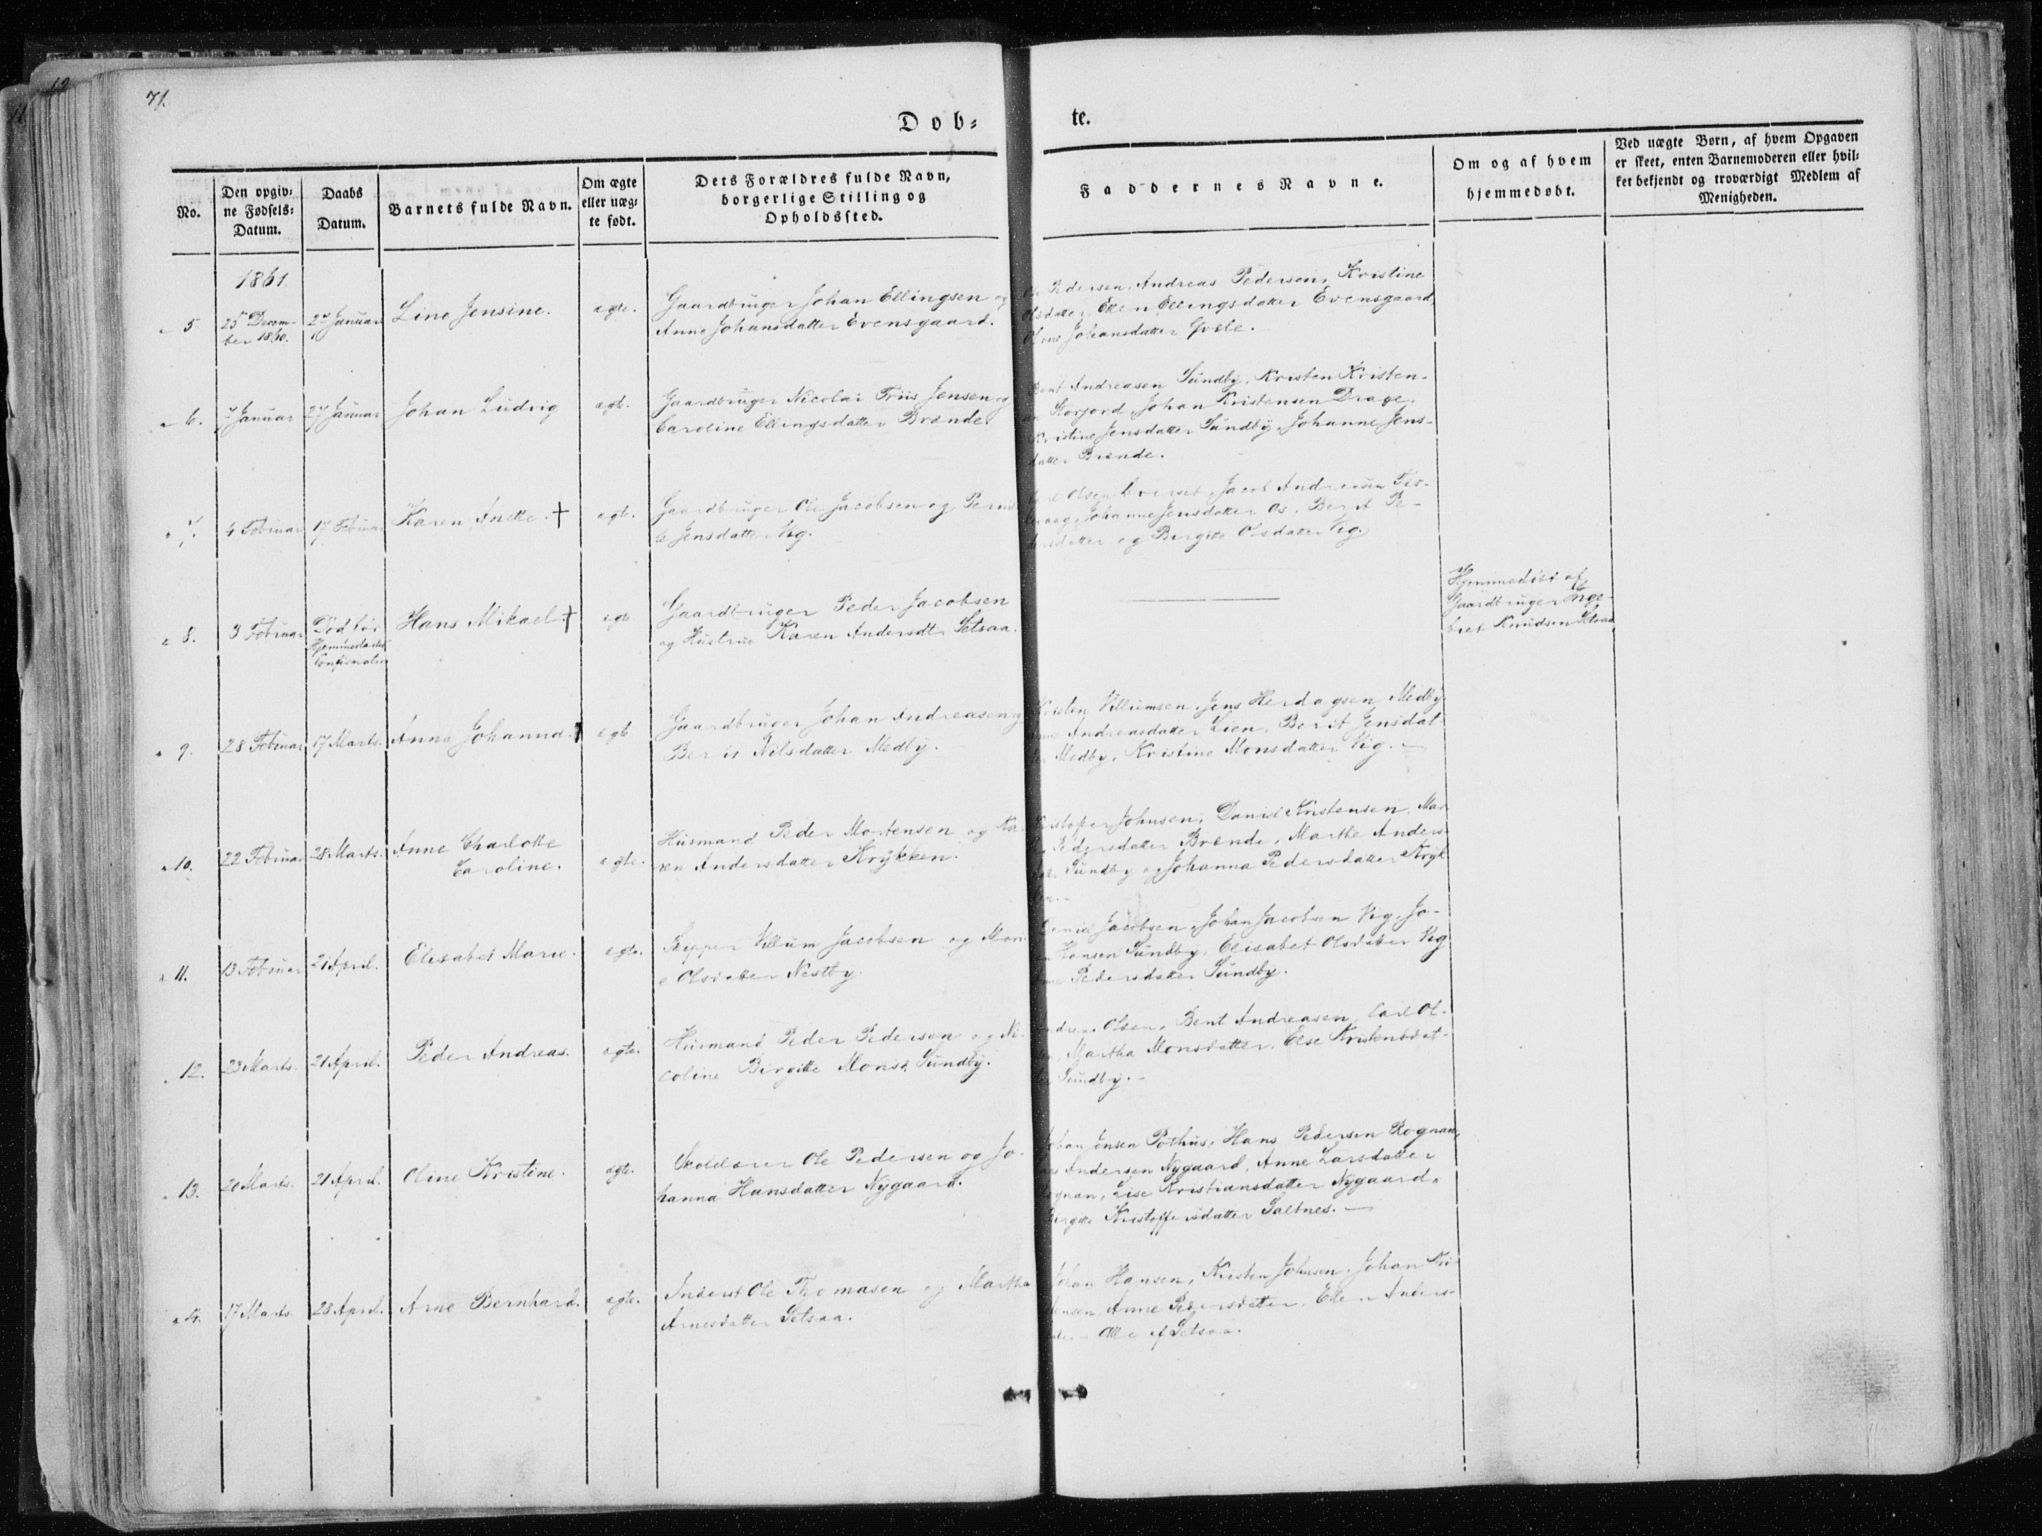 71.
Døb-
te.
No.
Den opgiv-
ne Fødsels-
Datum.
Daabs
Datum.
Barnets fulde Navn.
Om ægte
eller uæg-
te født.
Dets Forældres fulde Navn,
borgerlige Stilling og
Opholdssted.
Faddernes Navne.
Om og af hvem
hjemmedøbt.
Ved uægte Børn, af hvem Opgaven
er skeet, enten Barnemoderen eller hvil-
ket bekjendt og troværdigt Medlem af
Menigheden.
1861.
5
25 Decem-
ber 1860.
Januar
Line Jensine.
ægte.
Gaardbruger Johan Ellingsen og
Anne Johansdatter Evensgaard.
Pedersen, Andreas Pedersen, Kristine
Olsdatter, Ellen Ellingsdatter Evensgaard,
Johansdatter
6.
7 Januar
27 Januar
Johan Ludvig
ægte.
Gaardbruger Nicolai Friis Jensen og
Caroline Ellingsdatter Brænde.
Bent Andreasen Sundby, Kristen Kristen-
Storjord, Johan Kristensen Drage,
Kristine Jensdatter Sundby, Johanne Jens-
datter Brænde.
7.
4 Februar
17 Februar
Karen Anette. †
ægte.
Gaardbruger Ole Jacobsen og Pernil-
le Jensdatter Vig.
Olsen Jacob Andreasen
Johanne Jensdatter Os, Berit Pe-
dersdatter og Birgitte Olsdatter Vig.
8.
3 Februar
Død før
Hjemmedaabs
Confirmation
Hans Mikael. †
ægte
Gaardbruger Peder Jacobsen
og Hustrue Karen Andersdtr Setsaa.
Hjemmedøbt af
Gaardbruger Inge-
bret Knudsen Setsaa
9.
28 Februar
17 Marts.
Anna Johanna. †
ægte
Gaardbruger Johan Andreasen og
Berit Nilsdatter Medby.
Kristen Villumsen, Jens Herdagsen Medby,
Andreasdatter Lien, Berit Jensdat-
ter Medby, Kristine Monsdatter Vig. —
10.
22 Februar
28 Marts.
Anne Charlotte
Caroline.
ægte.
Husmand Peder Mortensen og Ka-
ren Andersdatter Krykken.
Johnsen, Daniel Kristensen, Mar-
Pedersdatter Brænde, Marthe Anders-
Sundby og Johanna Pedersdatter Kryk-
11.
13 Februar
21 April.
Elisabet Marie.
ægte.
Skipper Villum Jacobsen og
Olsdatter Nestby.
Daniel Jacobsen, Johan Jacobsen Vig, Jo-
Hansen Sundby, Elisabet Olsdatter Vig
Pedersdatter Sundby.
12.
23 Marts.
21 April.
Peder Andreas.
ægte.
Husmand Peder Pedersen og Ni-
coline Birgitte Monsd. Sundby.
Olsen, Bent Andreasen, Carl Ol-
Martha Monsdatter, Else Kristensdat-
Sundby. —
13.
20 Marts.
21 April.
Oline Kristine.
ægte.
Skolelærer Ole Pedersen og Jo-
hanna Hansdatter Nygaard.
Johan Jensen Pothus, Hans Pedersen Rognan,
Andersen Nygaard, Anne Larsdatter
Rognan, Lise Kristiansdatter Nygaard,
Birgitte Kristoffersdatter Saltnes. —
14.
17 Marts.
28 April.
Arne Bernhard.
ægte.
Inderst Ole Thomasen og Martha
Arnesdatter Setsaa.
Johan Hansen, Kristen Johnsen, Johan Ni-
Anne Pedersdatter, Ellen Anders-
Alle af Setsaa.